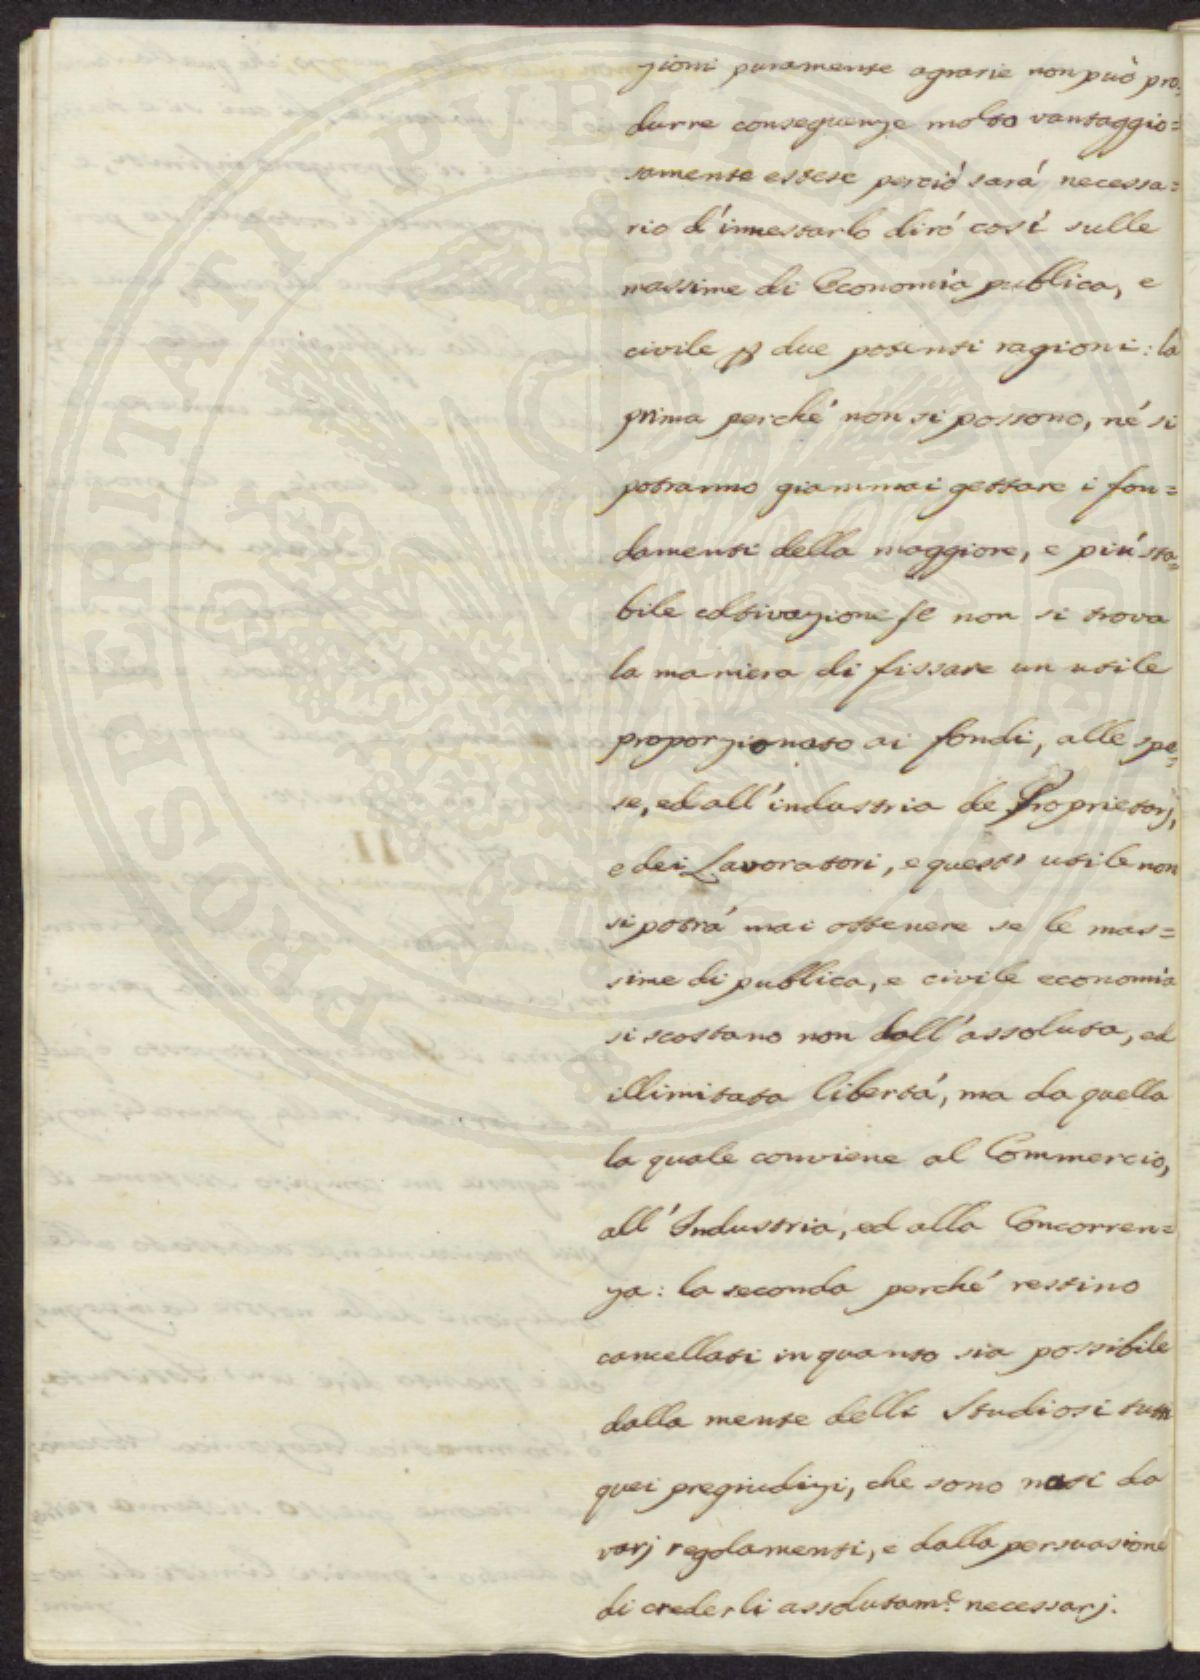 zioni puramente agrarie non può pro=
durre conseguenze molto vantaggio=
samente estese perciò sará necessa=
rio d'innestarlo diró cosí sulle
massime di Economia publica, e
civile p due potenti ragioni: la
prima perché non si possono, né si
potranno giammai gettare i fon=
damenti della maggiore, e piú sta=
bile coltivazione se non si trova
la maniera di fissare un utile
proporzionato ai fondi, alle spe=
se, ed all'industria de Proprietarj,
e dei Lavoratori, e questo utile non
si potrá mai ottenere se le mas=
sime di publica, e civile economia
si scostano non dall'assoluta, ed
illimitata libertá, ma da quella
la quale conviene al Commercio,
all'Industria, ed alla Concorren=
za: la seconda perché restino
cancellati in quanto sia possibile
dalla mente delli Studiosi tutti
quei pregiudizi, che sono nati da
varj regolamenti, e dalla persuasione
di crederli assolutam.e necessarj.
PROSPERITATI PUBLICAE AUGENDAE